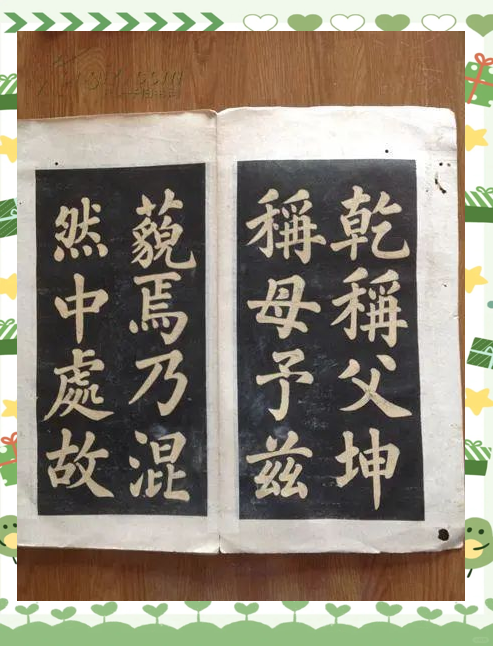 乾稱父坤
稱母予兹
藐焉乃混
然中處故